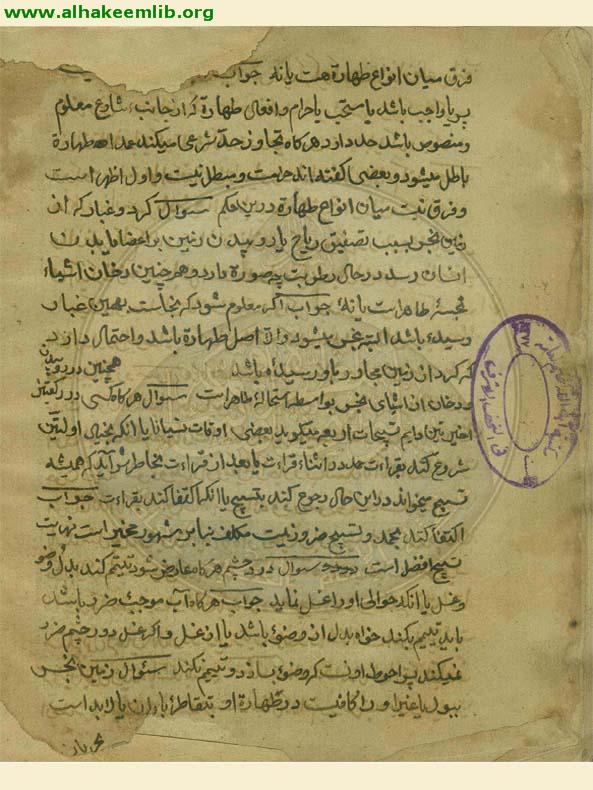 www.alhakeemlib.org
فرق میان انواع طهارة هست یا نه جواب
پس یا واجب باشد یا مستحب یا حرام و افعال طهارة که از جانب شارع معلوم
و منصوص باشد حد دارد هرکاه تجاوز حدّ شرعی میکند عمدا طهارة
باطل میشود و بعضی کفته اند حرامست و مبطل نیست و اول اظهر است
و فرق نیست میان انواع طهارة درین حکم سوال کرد و غبار که از
زمین نجس بسبب تصفیق ریاح یا روبیدن زمین بر اعضا یا بدن
انسان رسد در حال رطوبت چه صورة دارد و همچنین دخان اشیاء
نجسة طاهر است یا نه جواب اکر معلوم شود که نجاست بهمین غبار
رسیده باشد البته نجس میشود والا اصل طهارة باشد و احتمال دارد
که کرد از زمین مجاور باو رسیده باشد همچنین در روبیدن
و دخان از اشیای نجس بواسطه استحالة طاهر است سوال هرکاه کسی در رکعتین
اخیرتین دایم تسبیحات اربعه میکوید بعضی اوقات نسیانا یا انکه بجای اولتین
شروع کند بقراءت حمد در اثناء قراءت یا بعد از قراءت بخاطرش آید که همیشه
تسبیح میخواند در این حال رجوع کند بتسبیح یا انکه اکتفا کند بقراءت جواب
اکتفا کند بحمد و تسبیح ضرور نیست مکلف بنا بر مشهور مخیر است
تسبیح افضل است سوال درد چشم هرکاه عارض شود تیمم کند بدل وضو
و غسل یا انکه حوالی او را غسل نماید جواب هرکاه آب موجب ضرر باشد
باید تیمم بکند خواه بدل از وضوء باشد یا از غسل و اکر غسل دور چشم ضرر
نمیکند پس احوط اونست که وضوء بسازد و تیمم بکند سئوال زمین نجس
ببول یا غیر او را کافیست در تطهارة او بتقاطر باران یا لابد است